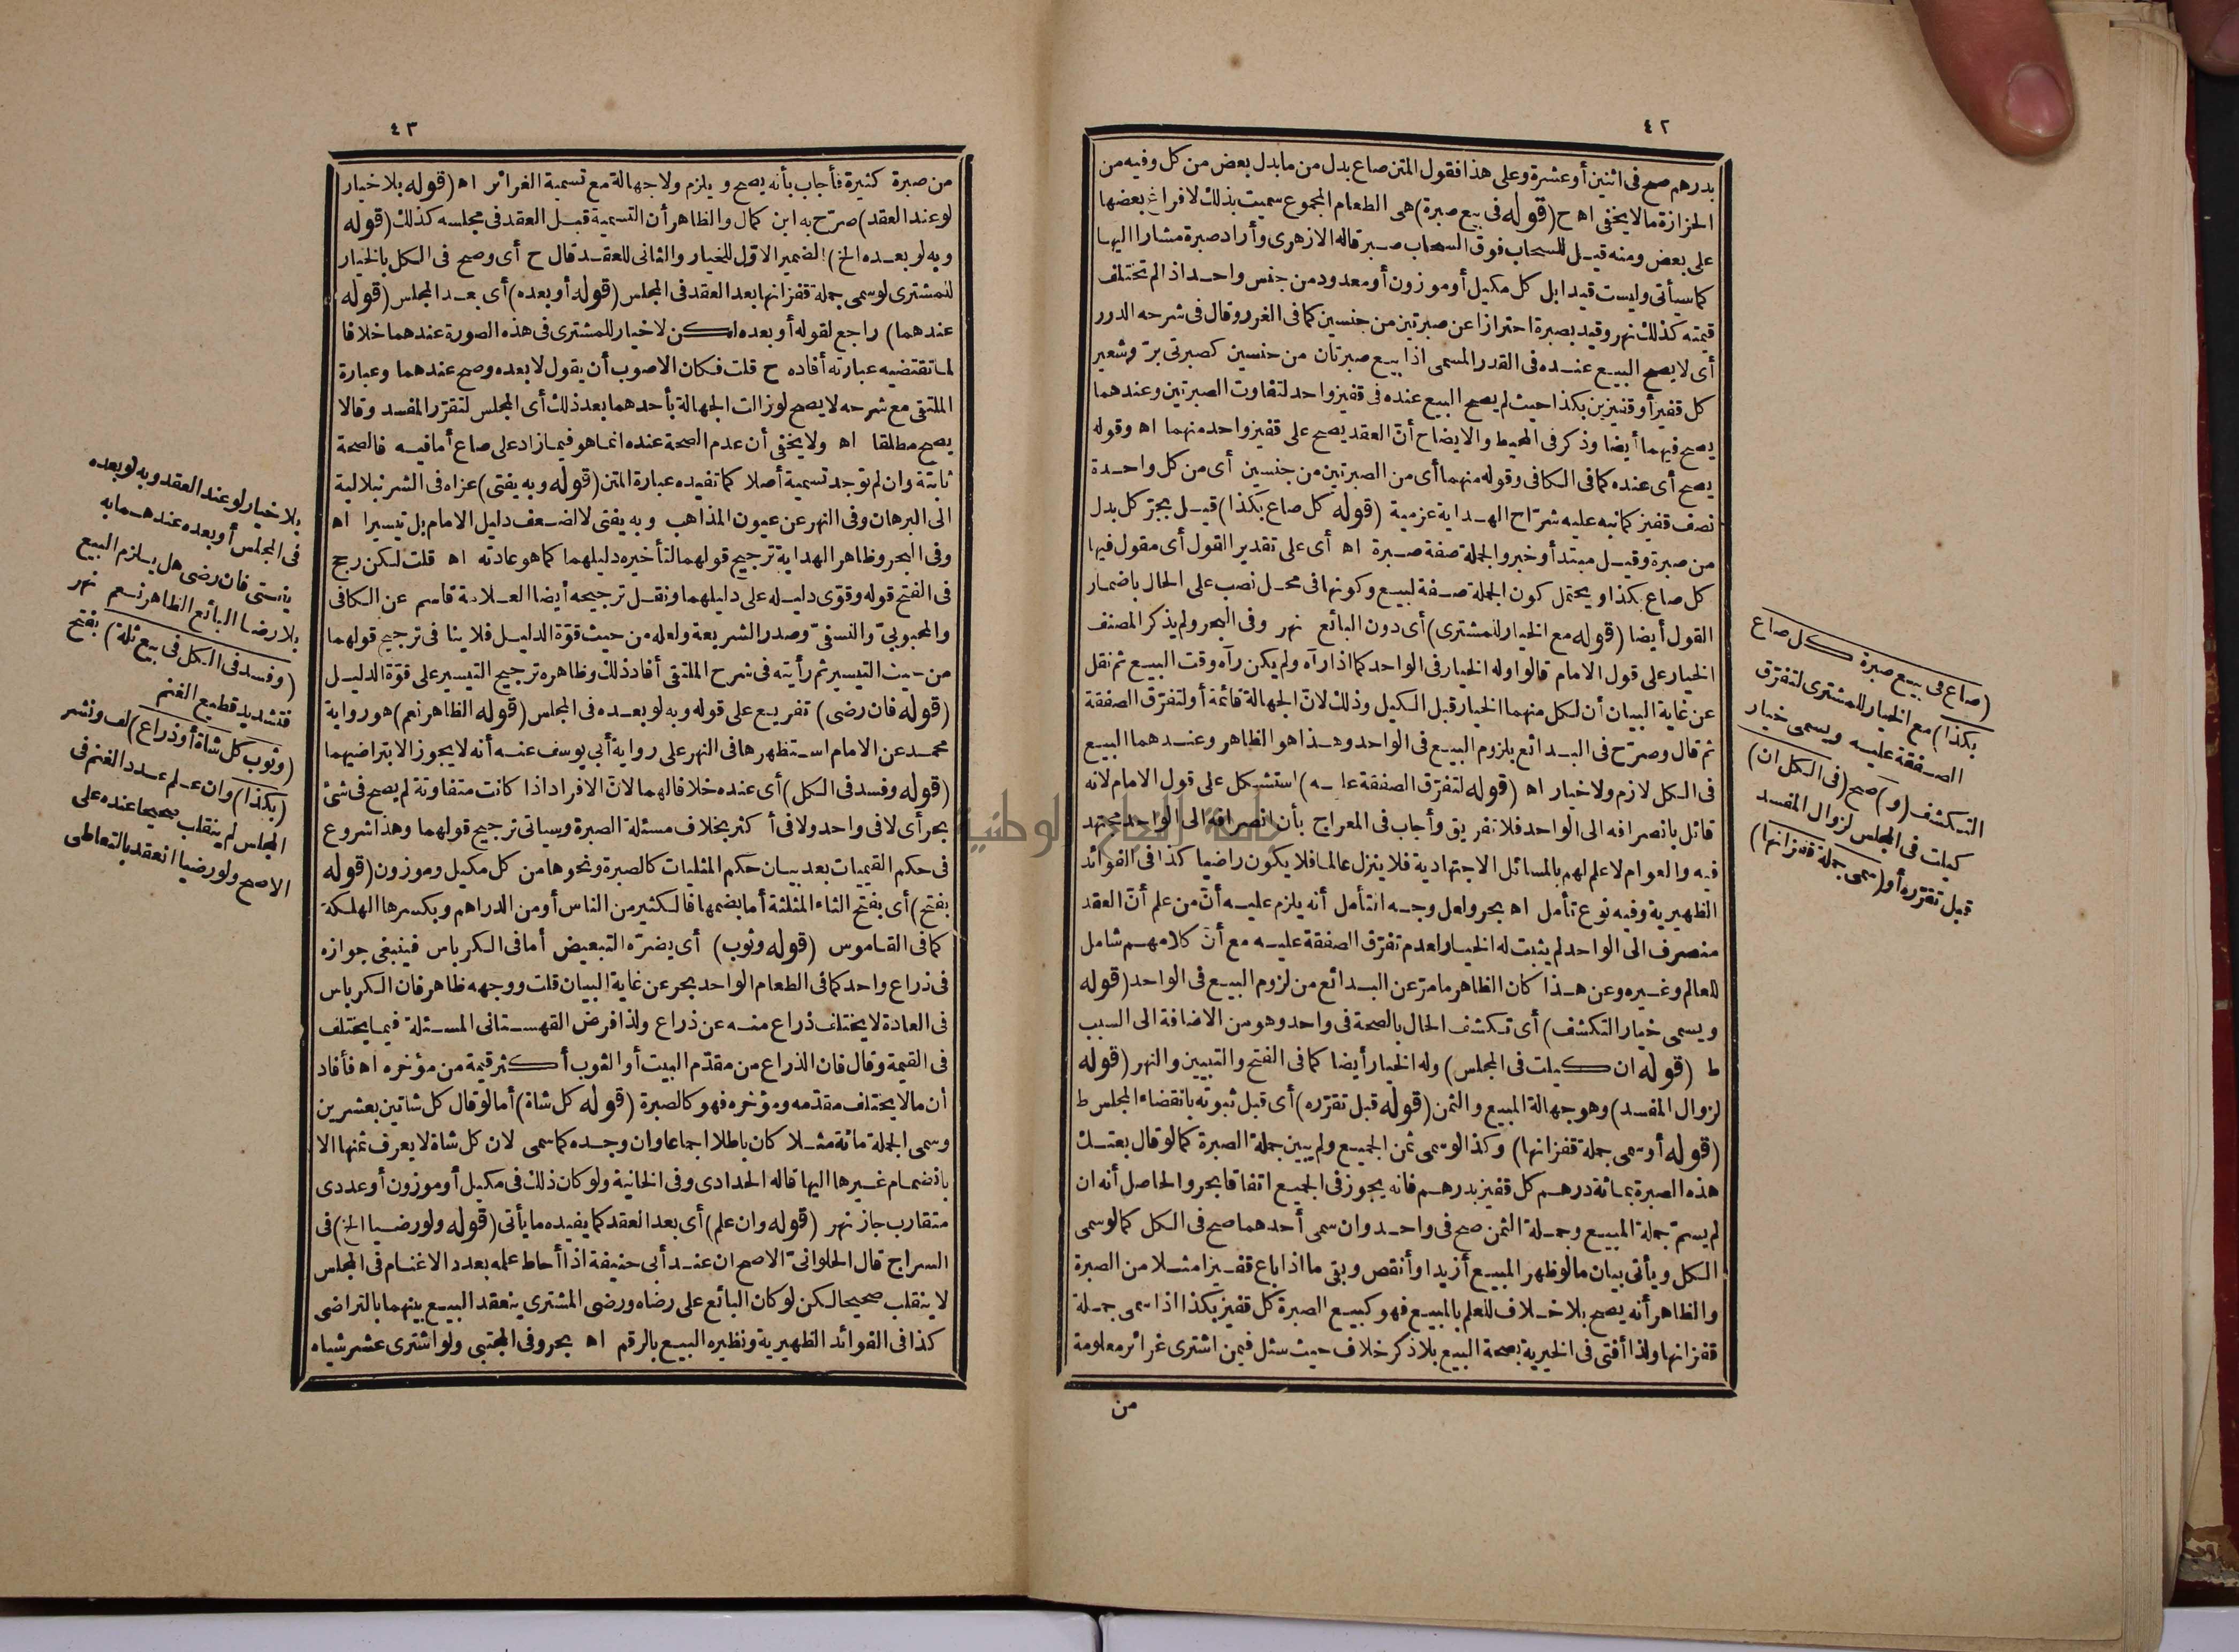 ٤٢
بدرهم صح فى اثنين أو عشرة وعلى هذا فقول المتن صاع بدل من ما بدل بعض من كل وفيه من
الحزازة مالا يخفى اه ح (قوله فى بيع صبرة) هى الطعام المجموع سميت بذلك لافراغ بعضها
على بعض ومنه قيل للسحاب فوق السحاب صبير قاله الازهرى وأراد صبرة مشارا اليها
كما سيأتى وليست قيدا بل كل مكيل أو موزون أو معدود من جنس واحد اذا لم تختلف
قيمته كذلك نهر وقيد بصبرة احترازا عن صبرتين من جنسين كما فى الغرر وقال فى شرحه الدرر
أى لا يصح البيع عنده فى القدر المسمى اذا بيع صبرتان من جنسين كصبرتى برّ وشعير
كل قفيز أو قفيزين بكذا حيث لم يصح البيع عنده فى قفيز واحد لتفاوت الصبرتين وعندهما
يصح فيهما أيضا وذكر فى المحيط والايضاح أنّ العقد يصح على قفيز واحد منهما اه وقوله
يصح أى عنده كما فى الكافى وقوله منهما أى من الصبرتين من جنسين أى من كل واحدة
نصف قفيز كما نبه عليه شرّاح الهداية عزمية (قوله كل صاع بكذا) قيل بجرّ كل بدل
من صبرة وقيل مبتدأ وخبر والجملة صفة صبرة اه أى على تقدير القول أى مقول فيها
كل صاع بكذا ويحتمل كون الجملة صفة لبيع وكونها فى محل نصب على الحال باضمار
القول أيضا (قوله مع الخيار للمشترى) أى دون البائع نهر وفى البحر ولم يذكر المصنف
الخيار على قول الامام قالوا وله الخيار فى الواحد كما اذا رآه ولم يكن رآه وقت البيع ثم نقل
عن غاية البيان أن لكل منهما الخيار قبل الكيل وذلك لانّ الجهالة قائمة أو لتفرّق الصفقة
ثم قال وصرّح فى البدائع بلزوم البيع فى الواحد وهذا هو الظاهر وعندهما البيع
فى الكل لازم ولا خيار اه (قوله لتفرّق الصفقة عليه) استشكل على قول الامام لانه
قائل بانصرافه الى الواحد فلا تفريق وأجاب فى المعراج بأن انصرافه الى الواحد مجتهد
فيه والعوام لا علم لهم بالمسائل الاجتهادية فلا ينزل عالما فلا يكون راضيا كذا فى الفوائد
الظهيرية وفيه نوع تأمل اه بحر ولعل وجه التأمل أنه يلزم عليه أنّ من علم أنّ العقد
منصرف الى الواحد لم يثبت له الخيار لعدم تفرّق الصفقة عليه مع أنّ كلامهم شامل
للعالم وغيره وعن هذا كان الظاهر ما مرّ عن البدائع من لزوم البيع فى الواحد (قوله
ويسمى خيار التكشف) أى تكشف الحال بالصحة فى واحد وهو من الاضافة الى السبب
ط (قوله ان كيلت فى المجلس) وله الخيار أيضا كما فى الفتح والتبيين والنهر (قوله
لزوال المفسد) وهو جهالة المبيع والثمن (قوله قبل تقرّره) أى قبل ثبوته بانقضاء المجلس ط
(قوله أو سمى جملة قفزانها) وكذا لو سمى ثمن الجميع ولم يبين جملة الصبرة كما لو قال بعتك
هذه الصبرة بمائة درهم كل قفيز بدرهم فانه يجوز فى الجميع اتفاقا بحر والحاصل أنه ان
لم يسمّ جملة المبيع وجملة الثمن صح فى واحد وان سمى أحدهما صح فى الكل كما لو سمى
الكل ويأتى بيان ما لو ظهر المبيع أزيد أو أنقص وبقى ما اذا باع قفيزا مثلا من الصبرة
والظاهر أنه يصح بلا خلاف للعلم بالمبيع فهو كبيع الصبرة كل قفيز بكذا اذا سمى جملة
قفزانها ولذا أفتى فى الخيرية بصحة البيع بلا ذكر خلاف حيث سئل فيمن اشترى غرائر معلومة
من
(صاع فى بيع صبرة كل صاع
بكذا) مع الخيار للمشترى لتفرّق
الصفقة عليه ويسمى خيار
التكشف (و) صح (فى الكل ان)
كيلت فى المجلس لزوال المفسد
قبل تقرّره أو (سمى جملة قفزانها)
٤٣
من صبرة كثيرة فأجاب بأنه يصح ويلزم ولا جهالة مع تسمية الغرائر اه (قوله بلا خيار
لو عند العقد) صرّح به ابن كمال والظاهر أن التسمية قبل العقد فى مجلسه كذلك (قوله
وبه لو بعده الخ) الضمير الاوّل للخيار والثانى للعقد قال ح أى وصح فى الكل بالخيار
للمشترى لو سمى جملة قفزانها بعد العقد فى المجلس (قوله أو بعده) أى بعد المجلس (قوله
عندهما) راجع لقوله أو بعده لكن لا خيار للمشترى فى هذه الصورة عندهما خلافا
لما تقتضيه عبارته أفاده ح قلت فكان الاصوب أن يقول لا بعده وصح عندهما وعبارة
الملتقى مع شرحه لا يصح لو زالت الجهالة بأحدهما بعد ذلك أى المجلس لتقرّر المفسد وقالا
يصح مطلقا اه ولا يخفى أن عدم الصحة عنده انما هو فيما زاد على صاع أما فيه فالصحة
ثابتة وان لم توجد تسمية أصلا كما تفيده عبارة المتن (قوله وبه يفتى) عزاه فى الشرنبلالية
الى البرهان وفى النهر عن عيون المذاهب وبه يفتى لا لضعف دليل الامام بل تيسيرا اه
وفى البحر وظاهر الهداية ترجيح قولهما لتأخيره دليلهما كما هو عادته اه قلت لكن رجح
فى الفتح قوله وقوّى دليله على دليلهما ونقل ترجيحه أيضا العلامة قاسم عن الكافى
والمحبوبىّ والنسفىّ وصدر الشريعة ولعله من حيث قوّة الدليل فلا ينافى ترجيح قولهما
من حيث التيسير ثم رأيته فى شرح الملتقى أفاد ذلك وظاهره ترجيح التيسير على قوّة الدليل
(قوله فان رضى) تفريع على قوله وبه لو بعده فى المجلس (قوله الظاهر نعم) هو رواية
محمد عن الامام استظهرها فى النهر على رواية أبى يوسف عنه أنه لا يجوز الا بتراضيهما
(قوله وفسد فى الكل) أى عنده خلافا لهما لانّ الافراد اذا كانت متفاوتة لم يصح فى شئ
بحر أى لا فى واحد ولا فى أكثر بخلاف مسئلة الصبرة وسياتى ترجيح قولهما وهذا شروع
فى حكم القيميات بعد بيان حكم المثليات كالصبرة ونحوها من كل مكيل وموزون (قوله
بفتح) أى بفتح الثاء المثلثة أما بضمها فالكثير من الناس أو من الدراهم وبكسرها الهلكة
كما فى القاموس (قوله وثوب) أى يضرّه التبعيض أما فى الكرباس فينبغى جوازه
فى ذراع واحد كما فى الطعام الواحد بحر عن غاية البيان قلت ووجهه ظاهر فان الكرباس
فى العادة لا يختلف ذراع منه عن ذراع ولذا فرض القهستانى المسئلة فيما يختلف
فى القيمة وقال فان الذراع من مقدّم البيت أو الثوب أكثر قيمة من مؤخره اه فأفاد
أن مالا يختلف مقدّمه ومؤخره فهو كالصبرة (قوله كل شاة) أما لو قال كل شاتين بعشرين
وسمى الجملة مائة مثلا كان باطلا اجماعا وان وجده كما سمى لان كل شاة لا يعرف ثمنها الا
بانضمام غيرها اليها قاله الحدادى وفى الخانية ولو كان ذلك فى مكيل أو موزون أو عددى
متقارب جاز نهر (قوله وان علم) أى بعد العقد كما يفيده ما يأتى (قوله ولو رضيا الخ) فى
السراج قال الحلوانىّ الاصح ان عند أبى حنيفة اذا أحاط علمه بعدد الاغنام فى المجلس
لا ينقلب صحيحا لكن لو كان البائع على رضاه ورضى المشترى ينعقد البيع بينهما بالتراضى
كذا فى الفوائد الظهيرية ونظيره البيع بالرقم اه بحر وفى المجتبى ولو اشترى عشر شياه
بلا خيار لو عند العقد وبه لو بعده
فى المجلس أو بعده عندهما به
يفتى فان رضى هل يلزم البيع
بلا رضا البائع الظاهر نعم نهر
(وفسد فى الكل فى بيع ثلة) بفتح
فتشديد قطيع الغنم
(وثوب كل شاة أو ذراع) لف ونشر
(بكذا) وان علم عدد الغنم فى
المجلس لم ينقلب صحيحا عنده على
الاصح ولو رضيا انعقد بالتعاطى
جامعة النجاح الوطنية